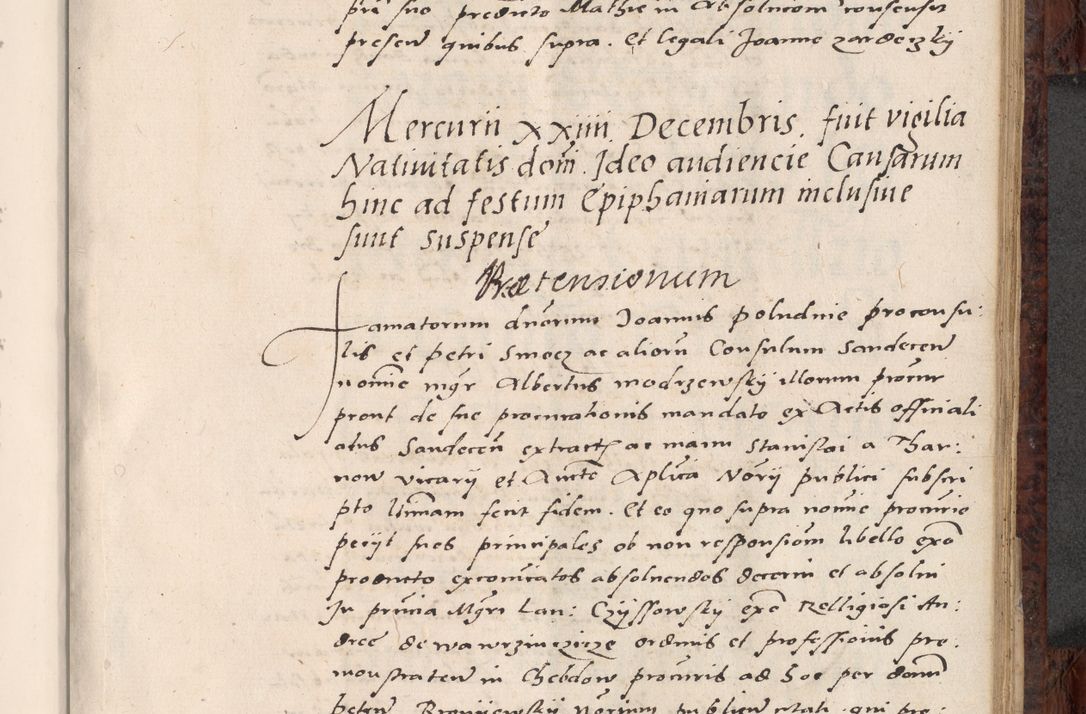 pri suo predicto Mathie in Absolucioni consensit
presen quibus supra. Et legali Joanne zardeczkij
Mercurii xxiiii Decembris, fuit vigilia
Nativitatis domi. Ideo audiencie Causarum
hinc ad festum Epiphaniarum inclusive
sunt suspense
Retensionum
Famatorum dnorum Joannis poludnie proconsu:
lis et petri Smocz ac aliorum Consulum Sandecen
nomine mgr Albertus modrzewskij illorum procur
prout de sue procurationis mandato ex Actis officiali
atus Sandecen extracto ac manu Stanislai a Thar:
now vicarij et Aucte Aplica Norij publici subscri
pto ltimam fecit fidem. Et eo quo supra nomine procurio
petijt suos principales ob non responsiom libello exo
producto exconicatos absolvendos decerni et absolvi
In pruia Mgri Lau: Czijssowskij exo Relligiosi An:
dree de wawrzinczicze ordinis et professionis pre:
monstraten in Chebdow procuris ad hoc per donum
petrum Broniewskij notarium publicum citati qui pre: